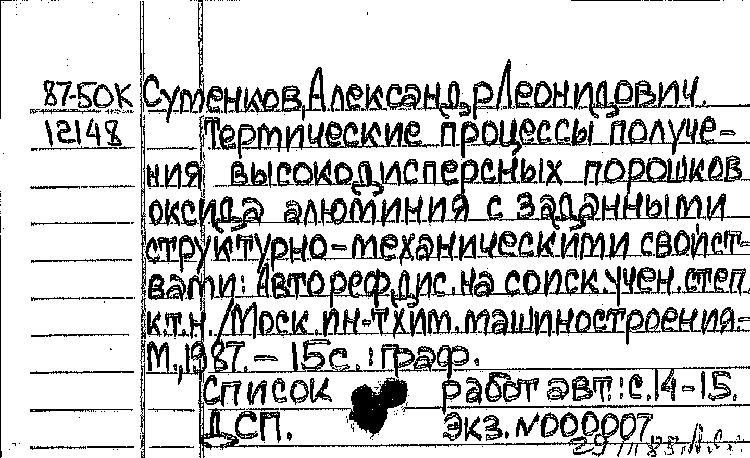 87-50К Сутенков, Александр Леонидович.
12148 Термические процессы получе-
ния высокодисперсных порошков
оксида алюминия с заданными
структурно-механическими свойст-
вами: Автореф. дис. на соиск. учен. степ.
к.т.н. /Моск. ин-т хим. машиностроения.-
М., 1987. - 15 с. : граф.
Список работ авт.: с. 14-15.
ДСП. Экз. N000007